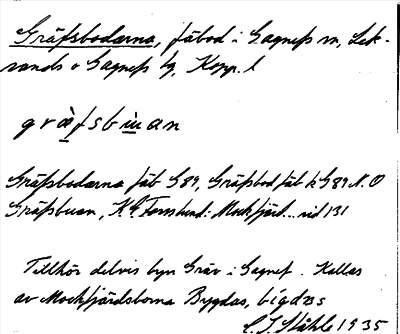 Gräfsbodarna, fäbod i Gagnefs sn, Lek-
sands o Gagnefs tg, Kopp. l
gräfsbuan
Gräfsbodarna fäb G89, Gräfsbod fäb k G89 N. O
Gräfsbuan, K G Forslund: Mockfjärd... sid 131
Tillhör delvis byn Gräv i Gagnef. Kallas
av Mockfjärdsborna Bygdas, bígdas
C. I. Ståhle 1935